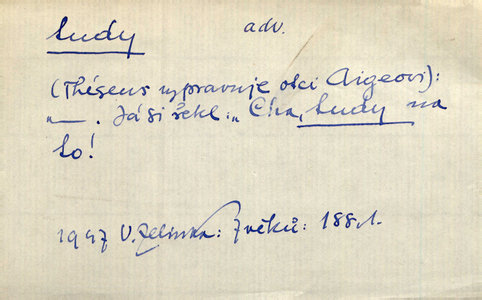 tudy adv.
(Théseus vypravuje otci Aigeovi):
"—. Já si řekl: „Cha, tudy na
to!
1947 V. Zelinka: Z věků: 188,1.